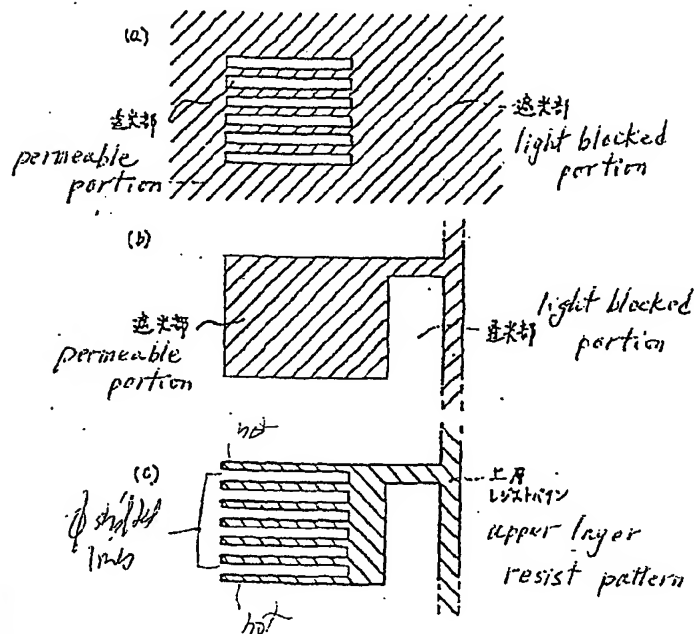 (a)
透光部
permeable
portion
遮光部
light blocked
portion
(b)
遮光部
permeable
portion
透光部
light blocked
portion
(c)
not
ϕ shifted
lines
not
上層
レジストパタン
upper layer
resist pattern